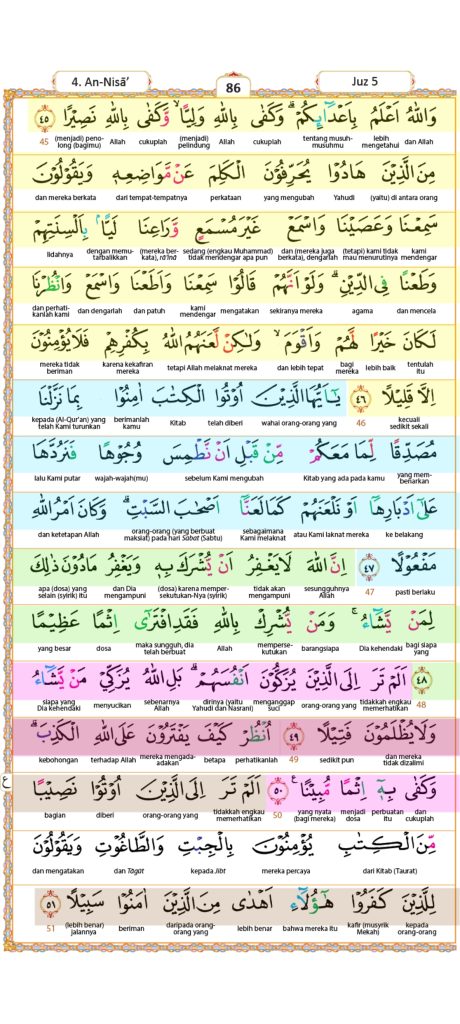 4. An-Nisā’
86
Juz 5
وَاللّٰهُ اَعْلَمُ بِاَعْدَاۤىِٕكُمْ ۗوَكَفٰى بِاللّٰهِ وَلِيًّا ۙوَّكَفٰى بِاللّٰهِ نَصِيْرًا ٤٥
dan Allah lebih mengetahui tentang musuh-musuhmu cukuplah Allah (menjadi) pelindung cukuplah Allah (menjadi) peno-long (bagimu) 45
مِنَ الَّذِيْنَ هَادُوْا يُحَرِّفُوْنَ الْكَلِمَ عَنْ مَّوَاضِعِهٖ وَيَقُوْلُوْنَ
(yaitu) di antara orang Yahudi yang mengubah perkataan dari tempat-tempatnya dan mereka berkata
سَمِعْنَا وَعَصَيْنَا وَاسْمَعْ غَيْرَ مُسْمَعٍ وَّرَاعِنَا لَيًّاۢ بِاَلْسِنَتِهِمْ
kami mendengar (tetapi) kami tidak mau menurutinya dan (mereka juga berkata), dengarlah sedang (engkau Muhammad) tidak mendengar apa pun (mereka ber-kata), rā‘inā dengan memu-tarbalikkan lidahnya
وَطَعْنًا فِى الدِّيْنِۗ وَلَوْ اَنَّهُمْ قَالُوْا سَمِعْنَا وَاَطَعْنَا وَاسْمَعْ وَانْظُرْنَا
dan mencela agama sekiranya mereka mengatakan kami mendengar dan patuh dan dengarlah dan perhati-kanlah kami
لَكَانَ خَيْرًا لَّهُمْ وَاَقْوَمَۙ وَلٰكِنْ لَّعَنَهُمُ اللّٰهُ بِكُفْرِهِمْ فَلَا يُؤْمِنُوْنَ
tentulah itu lebih baik bagi mereka dan lebih tepat tetapi Allah melaknat mereka karena kekafiran mereka mereka tidak beriman
اِلَّا قَلِيْلًا ٤٦ يٰٓاَيُّهَا الَّذِيْنَ اُوْتُوا الْكِتٰبَ اٰمِنُوْا بِمَا نَزَّلْنَا
kecuali sedikit sekali 46 wahai orang-orang yang telah diberi Kitab berimanlah kamu kepada (Al-Qur'an) yang telah Kami turunkan
مُصَدِّقًا لِّمَا مَعَكُمْ مِّنْ قَبْلِ اَنْ نَّطْمِسَ وُجُوْهًا فَنَرُدَّهَا
yang mem-benarkan Kitab yang ada pada kamu sebelum Kami mengubah wajah-wajah(mu) lalu Kami putar
عَلٰٓى اَدْبَارِهَآ اَوْ نَلْعَنَهُمْ كَمَا لَعَنَّآ اَصْحٰبَ السَّبْتِۗ وَكَانَ اَمْرُ اللّٰهِ
ke belakang atau Kami laknat mereka sebagaimana Kami melaknat orang-orang (yang berbuat maksiat) pada hari Sabat (Sabtu) dan ketetapan Allah
مَفْعُوْلًا ٤٧ اِنَّ اللّٰهَ لَا يَغْفِرُ اَنْ يُّشْرَكَ بِهٖ وَيَغْفِرُ مَا دُوْنَ ذٰلِكَ
pasti berlaku 47 sesungguhnya Allah tidak akan mengampuni (dosa) karena memper-sekutukan-Nya (syirik) dan Dia mengampuni apa (dosa) yang selain (syirik) itu
لِمَنْ يَّشَاۤءُ ۚ وَمَنْ يُّشْرِكْ بِاللّٰهِ فَقَدِ افْتَرٰٓى اِثْمًا عَظِيْمًا
bagi siapa yang Dia kehendaki barangsiapa memperse-kutukan Allah maka sungguh, dia telah berbuat dosa yang besar
٤٨ اَلَمْ تَرَ اِلَى الَّذِيْنَ يُزَكُّوْنَ اَنْفُسَهُمْ ۗ بَلِ اللّٰهُ يُزَكِّيْ مَنْ يَّشَاۤءُ
48 tidakkah engkau memerhatikan orang-orang yang menganggap suci dirinya (yaitu Yahudi dan Nasrani) sebenarnya Allah menyucikan siapa yang Dia kehendaki
وَلَا يُظْلَمُوْنَ فَتِيْلًا ٤٩ اُنْظُرْ كَيْفَ يَفْتَرُوْنَ عَلَى اللّٰهِ الْكَذِبَۗ
dan mereka tidak dizalimi sedikit pun 49 perhatikanlah betapa mereka mengada-adakan terhadap Allah kebohongan
وَكَفٰى بِهٖٓ اِثْمًا مُّبِيْنًا ࣖ ٥٠ اَلَمْ تَرَ اِلَى الَّذِيْنَ اُوْتُوْا نَصِيْبًا
dan cukuplah perbuatan itu menjadi dosa yang nyata (bagi mereka) 50 tidakkah engkau memerhatikan orang-orang yang diberi bagian
ع
مِّنَ الْكِتٰبِ يُؤْمِنُوْنَ بِالْجِبْتِ وَالطَّاغُوْتِ وَيَقُوْلُوْنَ
dari Kitab (Taurat) mereka percaya kepada Jibt dan Ṭāgūt dan mengatakan
لِلَّذِيْنَ كَفَرُوْا هٰٓؤُلَاۤءِ اَهْدٰى مِنَ الَّذِيْنَ اٰمَنُوْا سَبِيْلًا ٥١
kepada orang-orang kafir (musyrik Mekah) bahwa mereka itu lebih benar daripada orang-orang yang beriman (lebih benar) jalannya 51